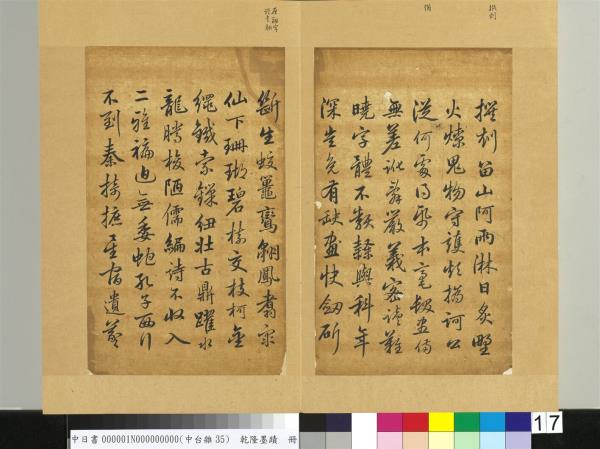 撰刻留山阿雨淋日炙野
火燎鬼物守護煩撝訶公
從何處得紙本毫髮盡備
無差訛辭嚴義密讀難
曉字體不類隸與科年
深豈免有缺畫快劍斫
斷生蛟鼉鸞翔鳳翥衆
仙下珊瑚碧樹交枝柯金
繩鐵索鎖紐壯古鼎躍水
龍騰梭陋儒編詩不收入
二雅褊迫無委蛇孔子西行
不到秦掎摭星宿遺羲
中日書000001N000000000(中台雜35) 乾隆墨蹟 冊
17